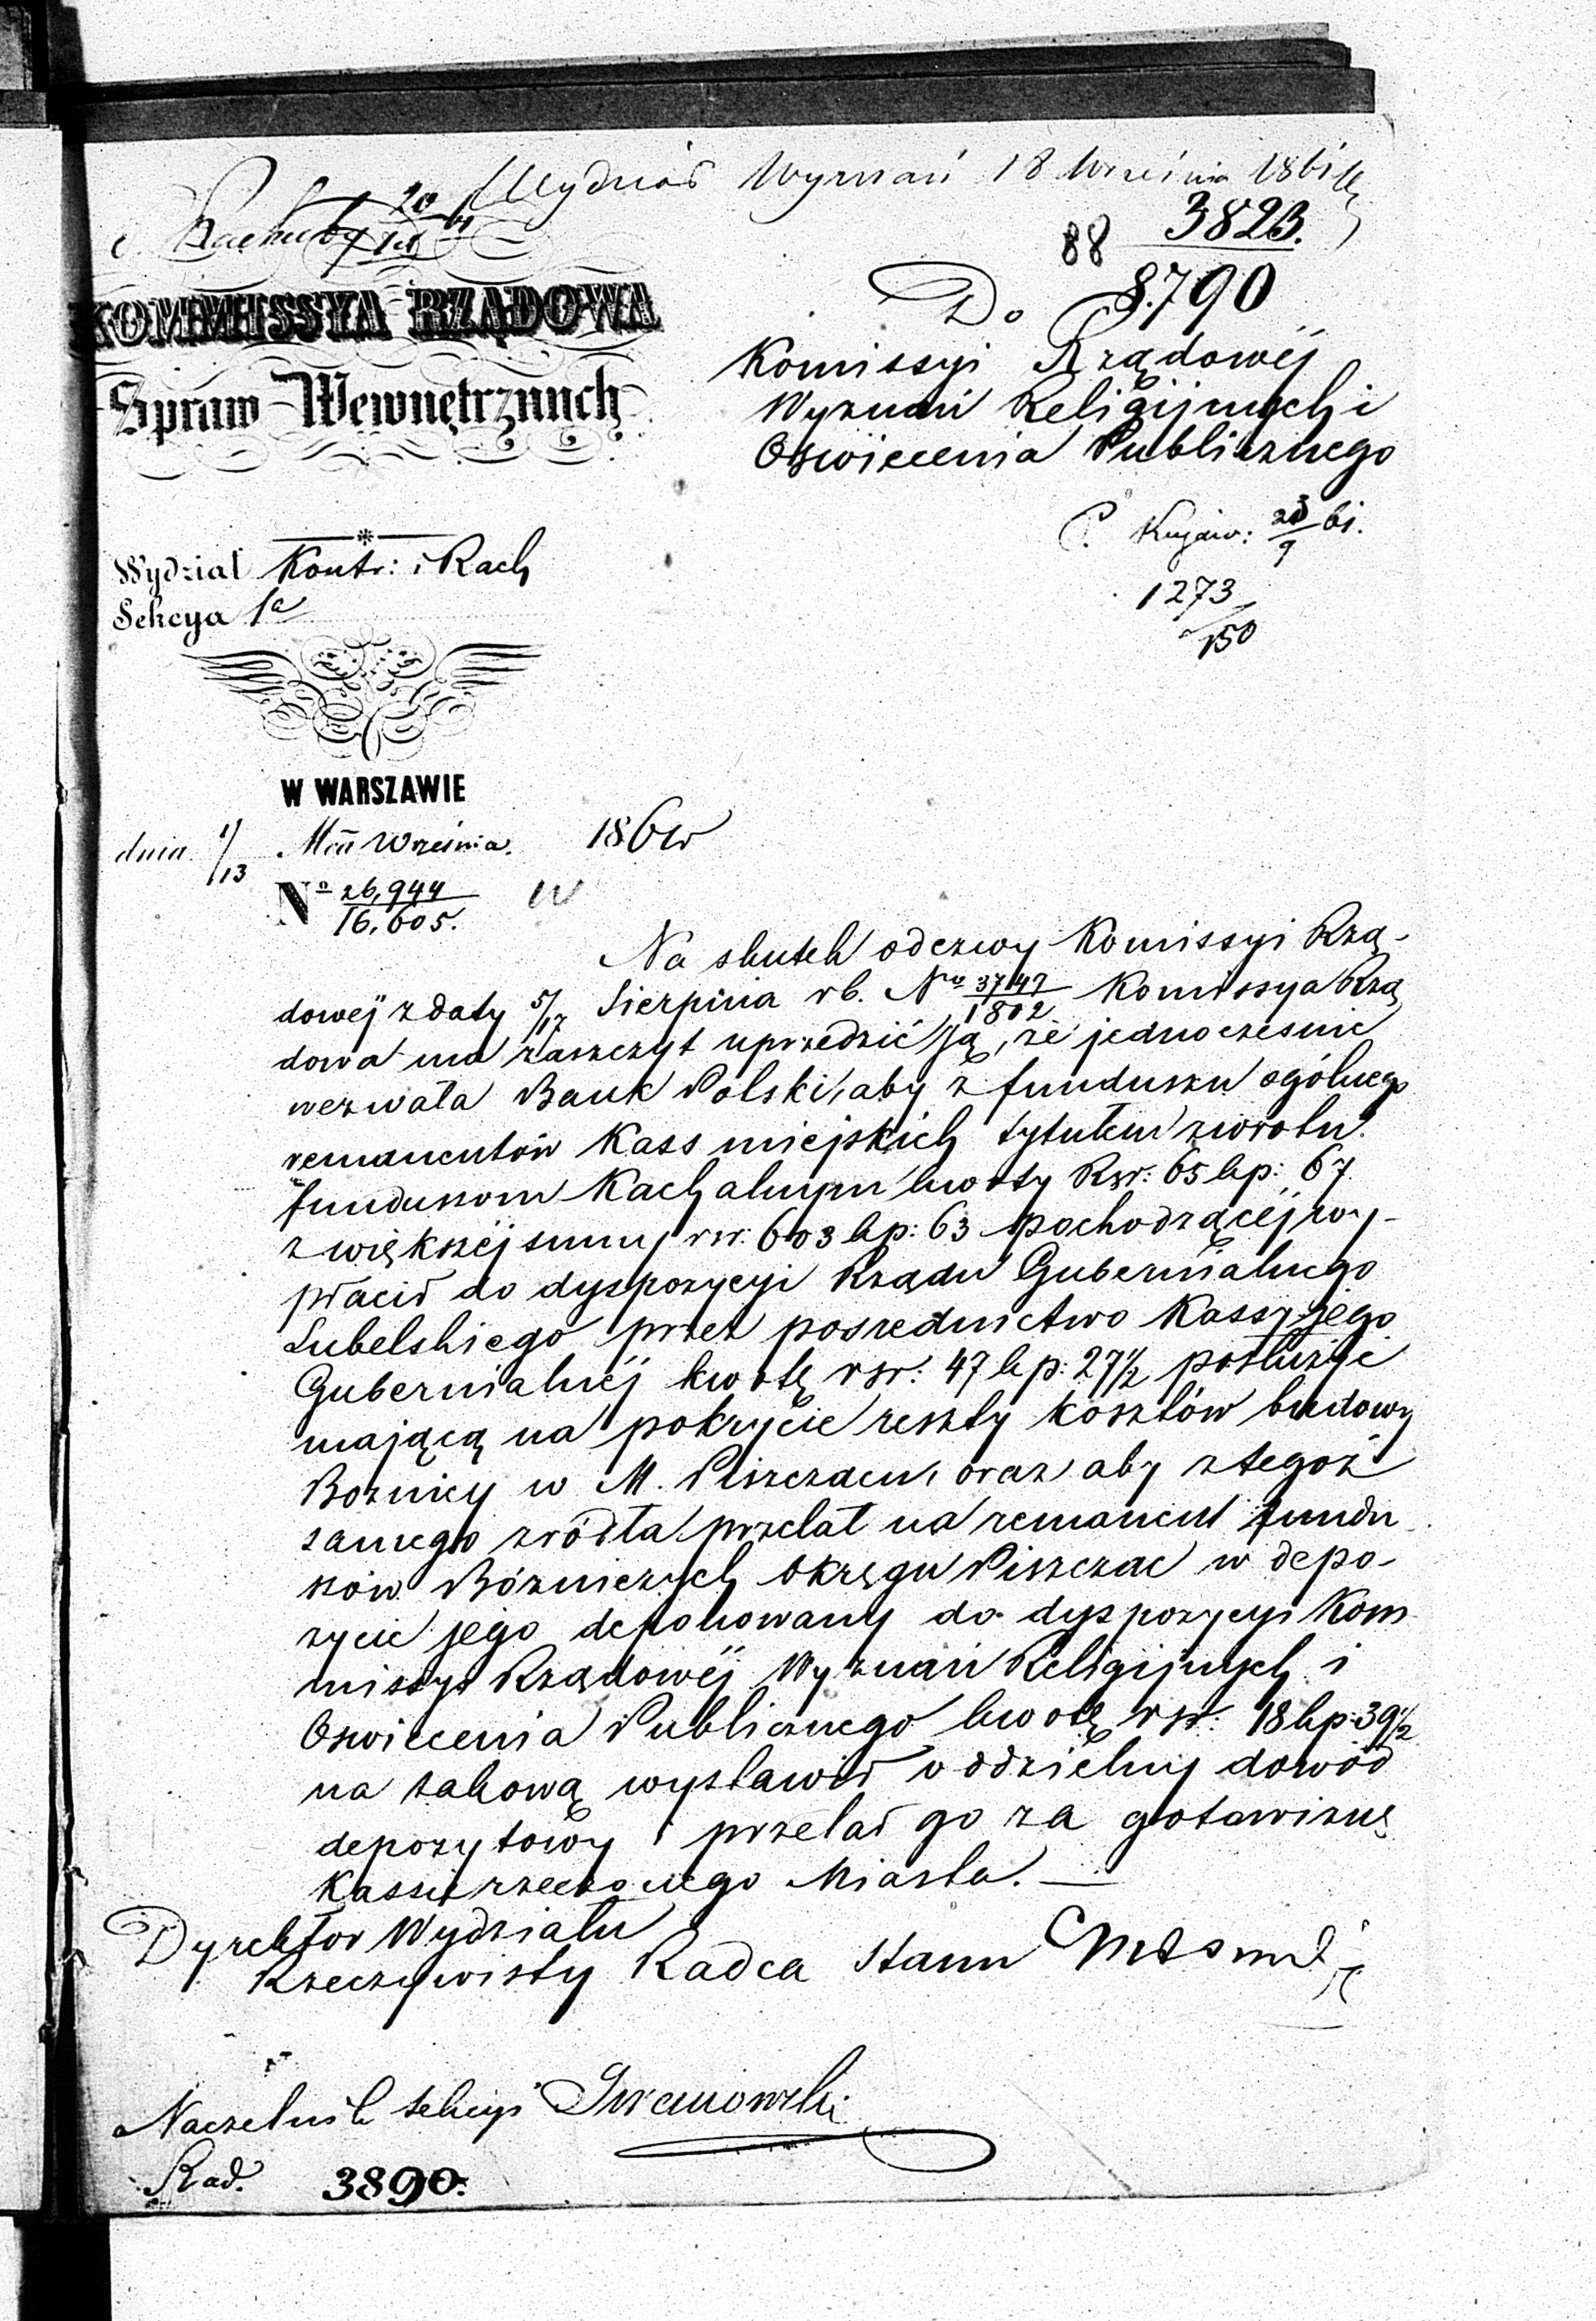 Wydział Wyznań 18 Września 1861
3823.
88 8.790
KOMMISSYA RZĄDOWA
Spraw Wewnętrznych
Do
Komissyi Rządowéj
Wyznań Religijnych i
Oświecenia Publicznego
Wydział Kontr: i Rach
Sekcya 1a
1273
150
W WARSZAWIE
dnia 1/13 Września 186
No 26,944/16,605.
Na skutek odezwy Komissyi Rzą-
dowéj z daty 5/17 Sierpnia rb. No 3747/1802 Komissya Rzą
dowa ma zaszczyt uprzedzić Ją, że jednocześnie
wezwała Bank Polski, aby z funduszu ogólnego
remanentów Kass miejskich tytułem zwrotu
funduszom Kachalnym kwoty Rsr: 65 kp: 67
z większéj summy rsr: 603 kp: 63 pochodzącéj wy-
płacił do dyspozycyi Rządu Gubernialnego
Lubelskiego przez pośrednictwo Kassy jego
Gubernialnéj kwotę rsr: 47 kp: 27½ posłużyć
mającą na pokrycie reszty kosztów budowy
Bożnicy w M. Piszczacu, oraz aby z tegoż
samego źródła przelał na remanent fundu
szów Bóżniczych Okręgu Piszczac w depo-
zycie jego deponowany do dyspozycyi Kom
missyi Rządowéj Wyznań Religijnych i
Oświecenia Publicznego kwotę rsr: 18 kp: 39½
na takową wystawił oddzielny dowód
depozytowy i przesłał go za gotowiznę
Kassie rzeczonego Miasta.
Dyrektor Wydziału
Rzeczywisty Radca Stanu
Naczelnik Sekcyi Iwanowski
Rad. 3890.